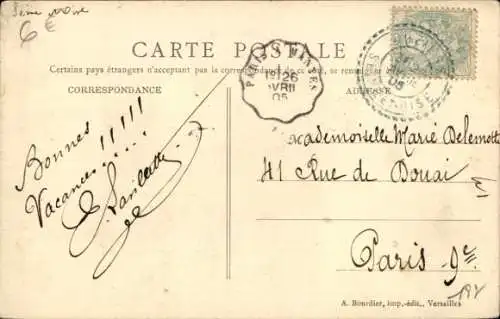 6 €
CARTE POSTALE
Certains pays étrangers n'acceptent pas la correspondance de ce côté, se renseigner
CORRESPONDANCE
ADRESSE
PARIS A MANTES
26
AVRIL
05
Bonnes
Vacances !!!!!
Mademoiselle Marie Delemotte
41 Rue de Douai
Paris 9e
A. Bourdier, imp.-édit., Versailles